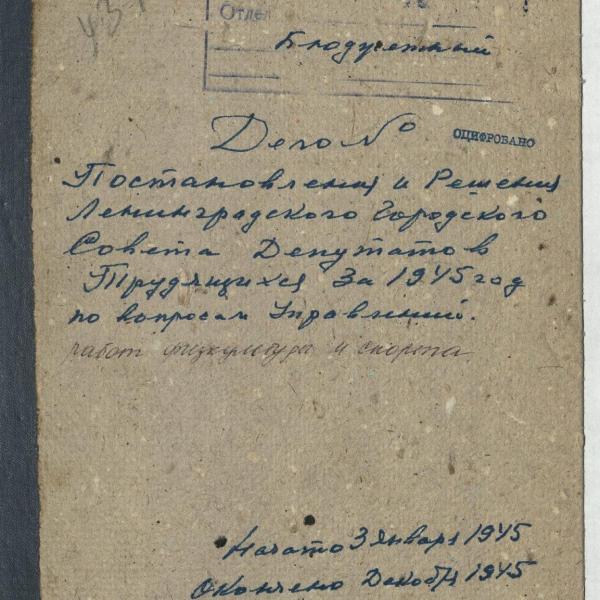 Отдел
Бюджетный
Дело №
ОЦИФРОВАНО
Постановления и Решения
Ленинградского Городского
Совета Депутатов
Трудящихся За 1945 год
по вопросам Управлений.
работ физкультура и спорта
Начато 3 Января 1945
Окончено Декабря 1945